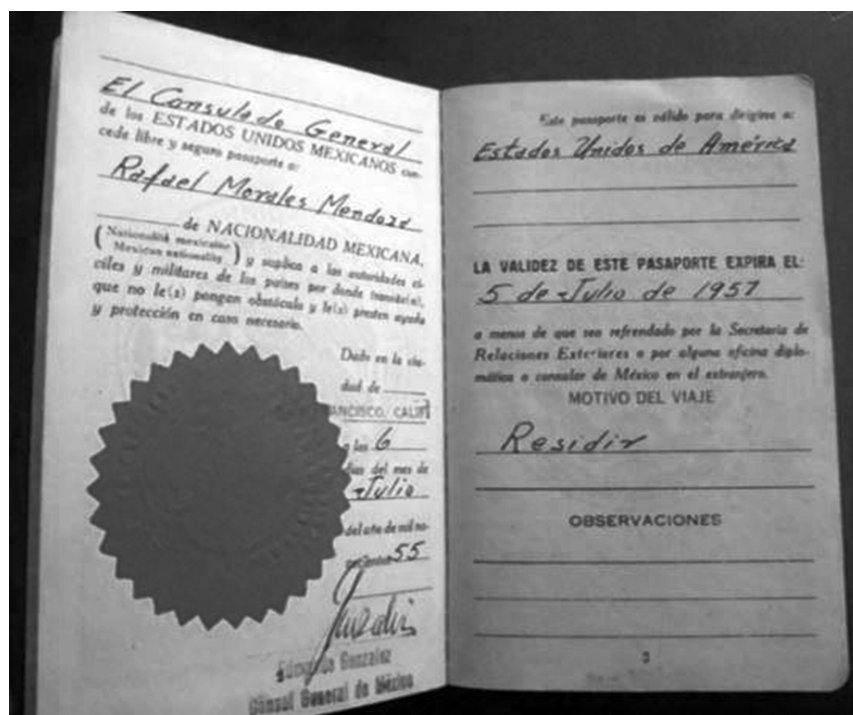 El Consulado General
de los ESTADOS UNIDOS MEXICANOS con-
cede libre y seguro pasaporte a:
Rafael Morales Mendoza
de NACIONALIDAD MEXICANA,
(Nationalité mexicaine
Mexican nationality) y suplica a las autoridades ci-
viles y militares de los países por donde transite(n),
que no le(s) pongan obstáculo y le(s) presten ayuda
y protección en caso necesario.
Dado en la ciu-
dad de
ANCISCO, CALIF
a los 6
días del mes de
Julio
del año de mil no-
55
Gonzalez
Cónsul General de México
Este pasaporte es válido para dirigirse a:
Estados Unidos de América
LA VALIDEZ DE ESTE PASAPORTE EXPIRA EL:
5 de Julio de 1957
a menos de que sea refrendado por la Secretaría de
Relaciones Exteriores o por alguna oficina diplo-
mática o consular de México en el extranjero.
MOTIVO DEL VIAJE
Residir
OBSERVACIONES
3